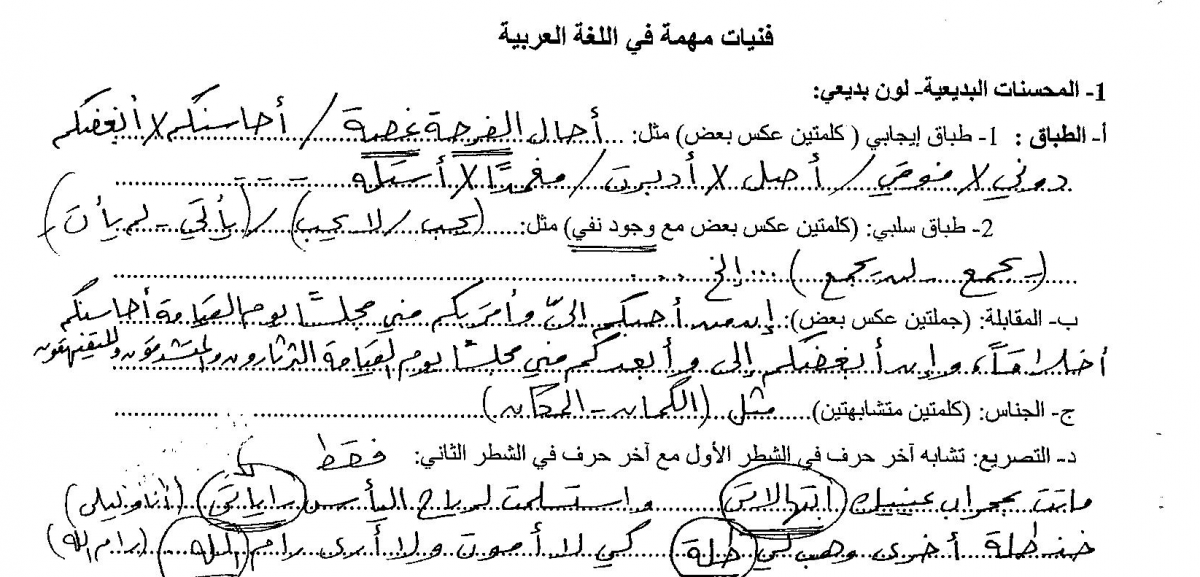 فنيات مهمة في اللغة العربية
1- المحسنات البديعية- لون بديعي:
أ- الطباق : 1- طباق إيجابي ( كلمتين عكس بعض) مثل: أحال الفرحة غصة / أحاسنكم x أبغضكم
دوني x فوقي / أقبل x أدبرت / مغمدًا x أستله
2- طباق سلبي: (كلمتين عكس بعض مع وجود نفي) مثل: (يحب / لا يحب) / (يأتي - لم يأت)
(يجمع - لن يجمع) ... إلخ
ب- المقابلة: (جملتين عكس بعض): إن من أحبكم إليّ وأقربكم مني مجلسًا يوم القيامة أحاسنكم
أخلاقًا، وإن أبغضكم إلي وأبعدكم مني مجلسًا يوم القيامة الثرثارون والمتشدقون والمتفيهقون
ج- الجناس: (كلمتين متشابهتين) مثل (الكمان - المكان)
د- التصريع: تشابه آخر حرف في الشطر الأول مع آخر حرف في الشطر الثاني: فقط
ماتت بمحراب عينيك ابتهالاتي واستسلمت لرياح اليأس راياتي (أنا وليلى)
أخرى كي لا أموت ولا أرى رام الله (رام الله)